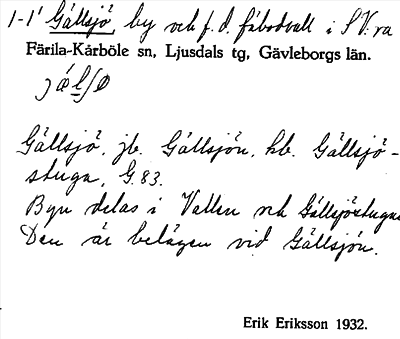 1-1 Gällsjö, by och f.d. fäbodvall i SV:ra
Färila-Kårböle sn, Ljusdals tg, Gävleborgs län.
Gällsjö, jb. Gällsjön, kb. Gällsjö-
stuga, G.83.
Byn delas i Vallen och Gällsjöstugan
Den är belägen vid Gällsjön.
Erik Eriksson 1932.